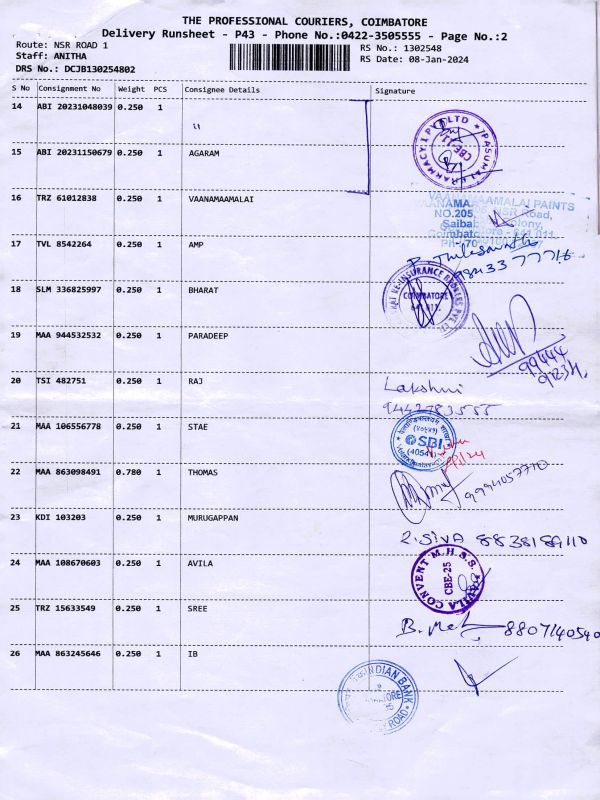 THE PROFESSIONAL COURIERS, COIMBATORE
Delivery Runsheet - P43 - Phone No.:0422-3505555 - Page No.:2
Route: NSR ROAD 1
RS No.: 1302548
Staff: ANITHA
RS Date: 08-Jan-2024
DRS No.: DCJB130254802
S No Consignment No Weight PCS Consignee Details Signature
14 ABI 20231048039 0.250 1
15 ABI 20231150679 0.250 1 AGARAM
16 TRZ 61012838 0.250 1 VAANAMAAMALAI
NO.205, NSR Road,
17 TVL 8542264 0.250 1 AMP
18 SLM 336825997 0.250 1 BHARAT
COIMBATORE
19 MAA 944532532 0.250 1 PARADEEP
99444
20 TSI 482751 0.250 1 RAJ
Lakshmi
9442783555
21 MAA 106556778 0.250 1 STAE
SBI
(40541)
22 MAA 863098491 0.780 1 THOMAS
9994057710
23 KDI 103203 0.250 1 MURUGAPPAN
R. SIVA 8838189110
24 MAA 108670603 0.250 1 AVILA
AVILA CONVENT M.H.S.S.
CBE-25
25 TRZ 15633549 0.250 1 SREE
8807140540
26 MAA 863245646 0.250 1 IB
INDIAN BANK